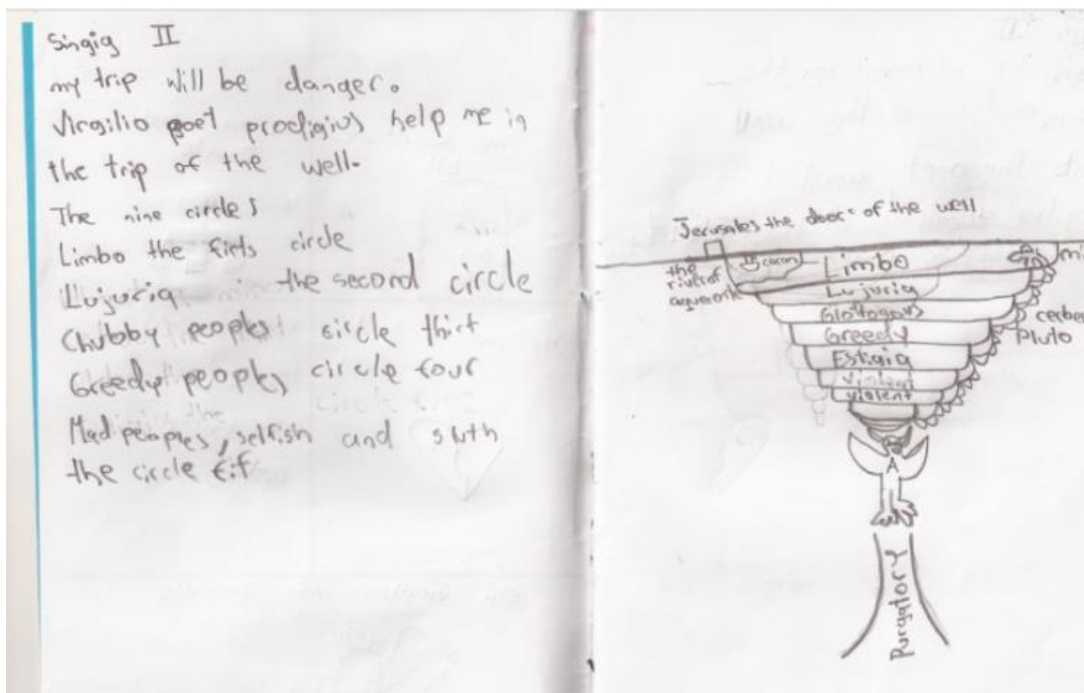 Singig II
my trip will be danger.
Virgilio poet prodigius help me in
the trip of the well.
The nine circles
Limbo the firts circle
Lujuria the second circle
Chubby peoples circle thirt
Greedy peoples circle four
Mad peoples, selfish and sluth
the circle fif
Jerusales the door of the well.
the
river of
aqueronte
caron
Limbo
Lujuria
Glottogous
Greedy
Estigia
violent
violent
mi
cerber
Pluto
A
Purgatory